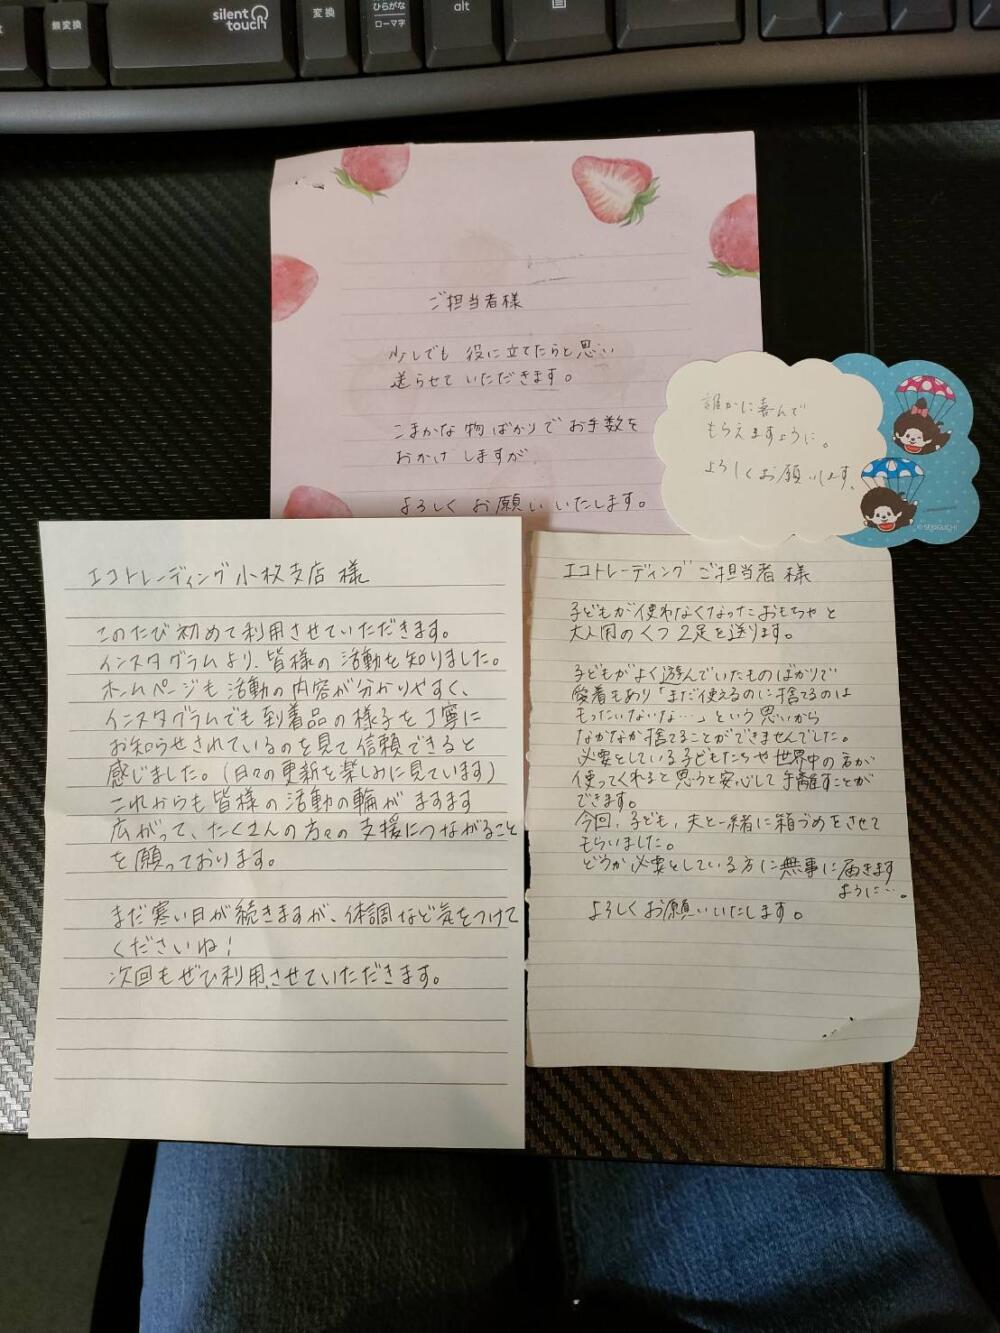 無変換
silent
touch
変換
ひらがな
ローマ字
alt
ご担当者様
少しでも 役に立てたらと思い
送らせていただきます。
こまかな物ばかりでお手数を
おかけしますが
よろしくお願いいたします。
誰かに喜んで
もらえますように。
よろしくお願いします。
© SEKIGUCHI
エコトレーディング小牧支店 様
このたび初めて利用させていただきます。
インスタグラムより、皆様の活動を知りました。
ホームページも活動の内容が分かりやすく、
インスタグラムでも到着品の様子を丁寧に
お知らせされているのを見て信頼できると
感じました。(日々の更新を楽しみに見ています)
これからも皆様の活動の輪がますます
広がって、たくさんの方々の支援につながること
を願っております。
まだ寒い日が続きますが、体調など気をつけて
くださいね!
次回もぜひ利用させていただきます。
エコトレーディング ご担当者 様
子どもが使わなくなったおもちゃと
大人用のくつ 2足を送ります。
子どもがよく遊んでいたものばかりで
愛着もあり「まだ使えるのに捨てるのは
もったいないな…」という思いから
なかなか捨てることができませんでした。
必要としている子どもたちや世界中の方が
使ってくれると思うと安心して手離すことが
できます。
今回、子ども、夫と一緒に箱づめをさせて
もらいました。
どうか必要としている方に無事に届きます
ように…。
よろしくお願いいたします。